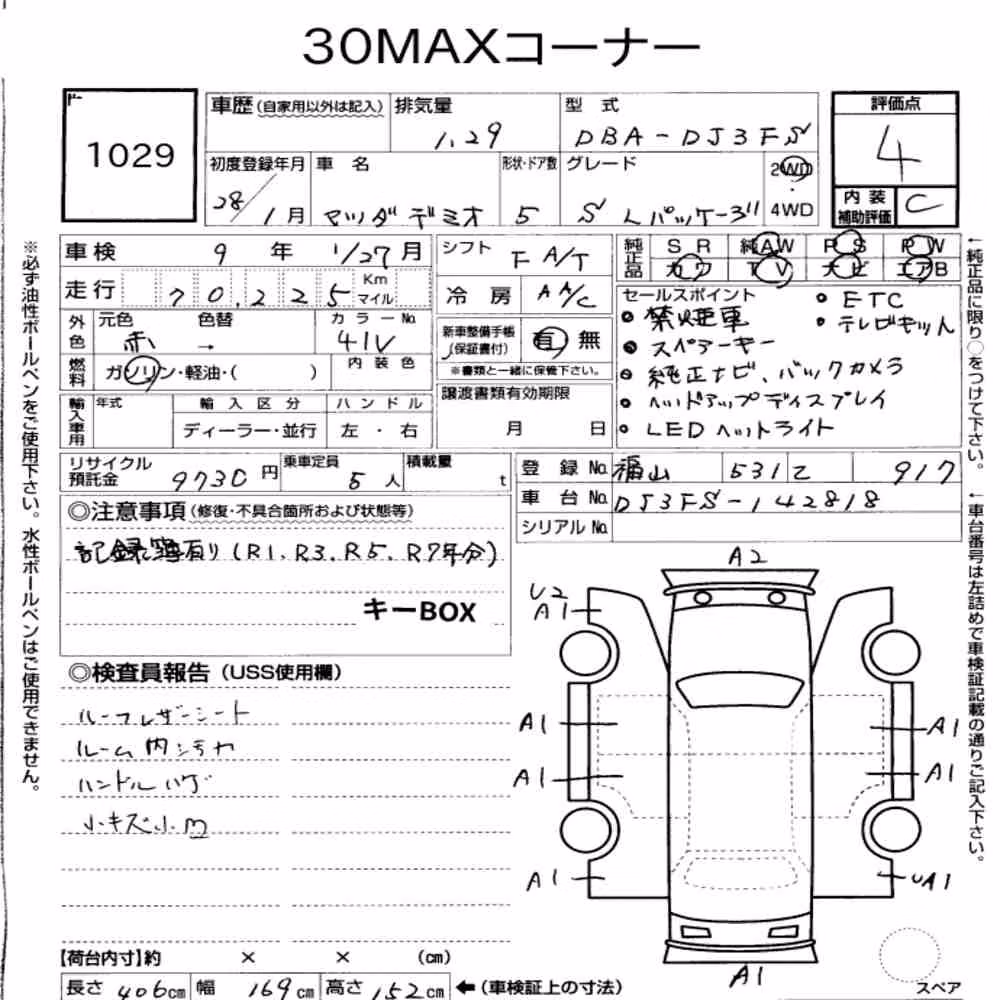 30MAXコーナー
1029
車歴(自家用以外は記入)
排気量
1.29
型 式
DBA-DJ3FS
評価点
4
内装補助評価
C
初度登録年月
28/1月
車 名
マツダ デミオ
形状・ドア数
5
グレード
S Lパッケージ
2WD
・
4WD
車検 9年 1/27月
走行 70,225 Km マイル
外色
元色 赤
色替 →
カラーNo. 41V
燃料 ガソリン・軽油・( )
内装色
輸入車用
年式
輸入区分
ディーラー・並行
ハンドル
左・右
シフト F A/T
冷房 AA/C
新車整備手帳(保証書付) 有 無
※書類と一緒に保管下さい。
譲渡書類有効期限
月 日
純正品
SR 純AW PS PW
カワ TV ナビ エアB
セールスポイント
・禁煙車
・スペアーキー
・純正ナビ、バックカメラ
・ヘッドアップディスプレイ
・LEDヘットライト
・ETC
・テレビキット
リサイクル預託金 9730円
乗車定員 5人
積載量 t
登録No. 福山 531 Z 917
車台No. DJ3FS-142818
シリアルNo.
◎注意事項(修復・不具合箇所および状態等)
記録簿有り(R1.R3.R5.R7年分)
キーBOX
◎検査員報告(USS使用欄)
ハーフレザーシート
ルーム内シミヤケ
ハンドルハゲ
小キズ小凹
A2
U2
A1
A1
A1
A1
A1
A1
UA1
A1
スペア
【荷台内寸】約 × × (cm)
長さ 406cm 幅 169cm 高さ 152cm ←(車検証上の寸法)
※必ず油性ボールペンをご使用下さい。水性ボールペンはご使用できません。
←純正品に限り○をつけて下さい。
←車台番号は左詰めで車検証記載の通りご記入下さい。